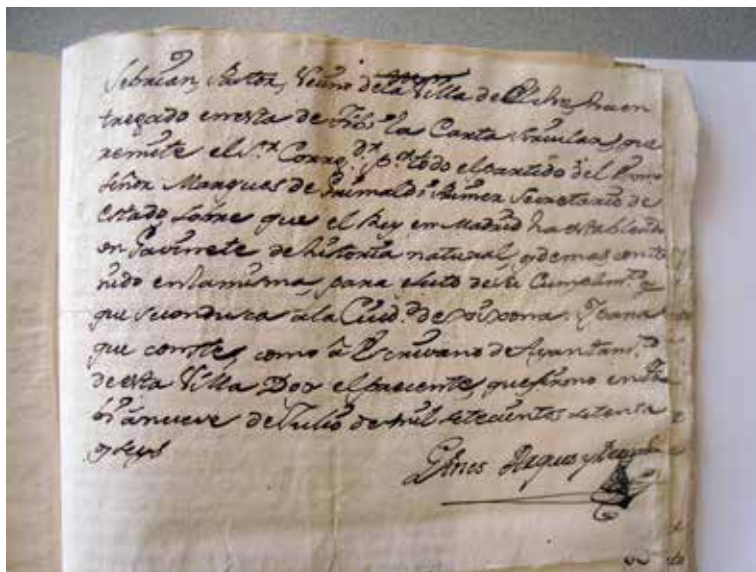 Sebrian Pastor, Vecino de la Villa de Elche, ha en
tregado en esta de Ibi la Carta Circular, que
remite el S.or Correg.or p.a todo el partido del Exmo
Señor Marques de Grimaldi Primer Secretario de
Estado sobre que el Rey en Madrid ha establecido
un Gavinete de historia natural, y demas conte
nido en la misma, para efecto de su Cumplim.to y
que se conduzca a la Ciud.d de Xixona. Y para
que conste, como a Escrivano de Ayuntam.to
de esta Villa Doy el presente, que firmo en
Ibi à nueve de Julio de mil setecientos setenta
y seys
Gines